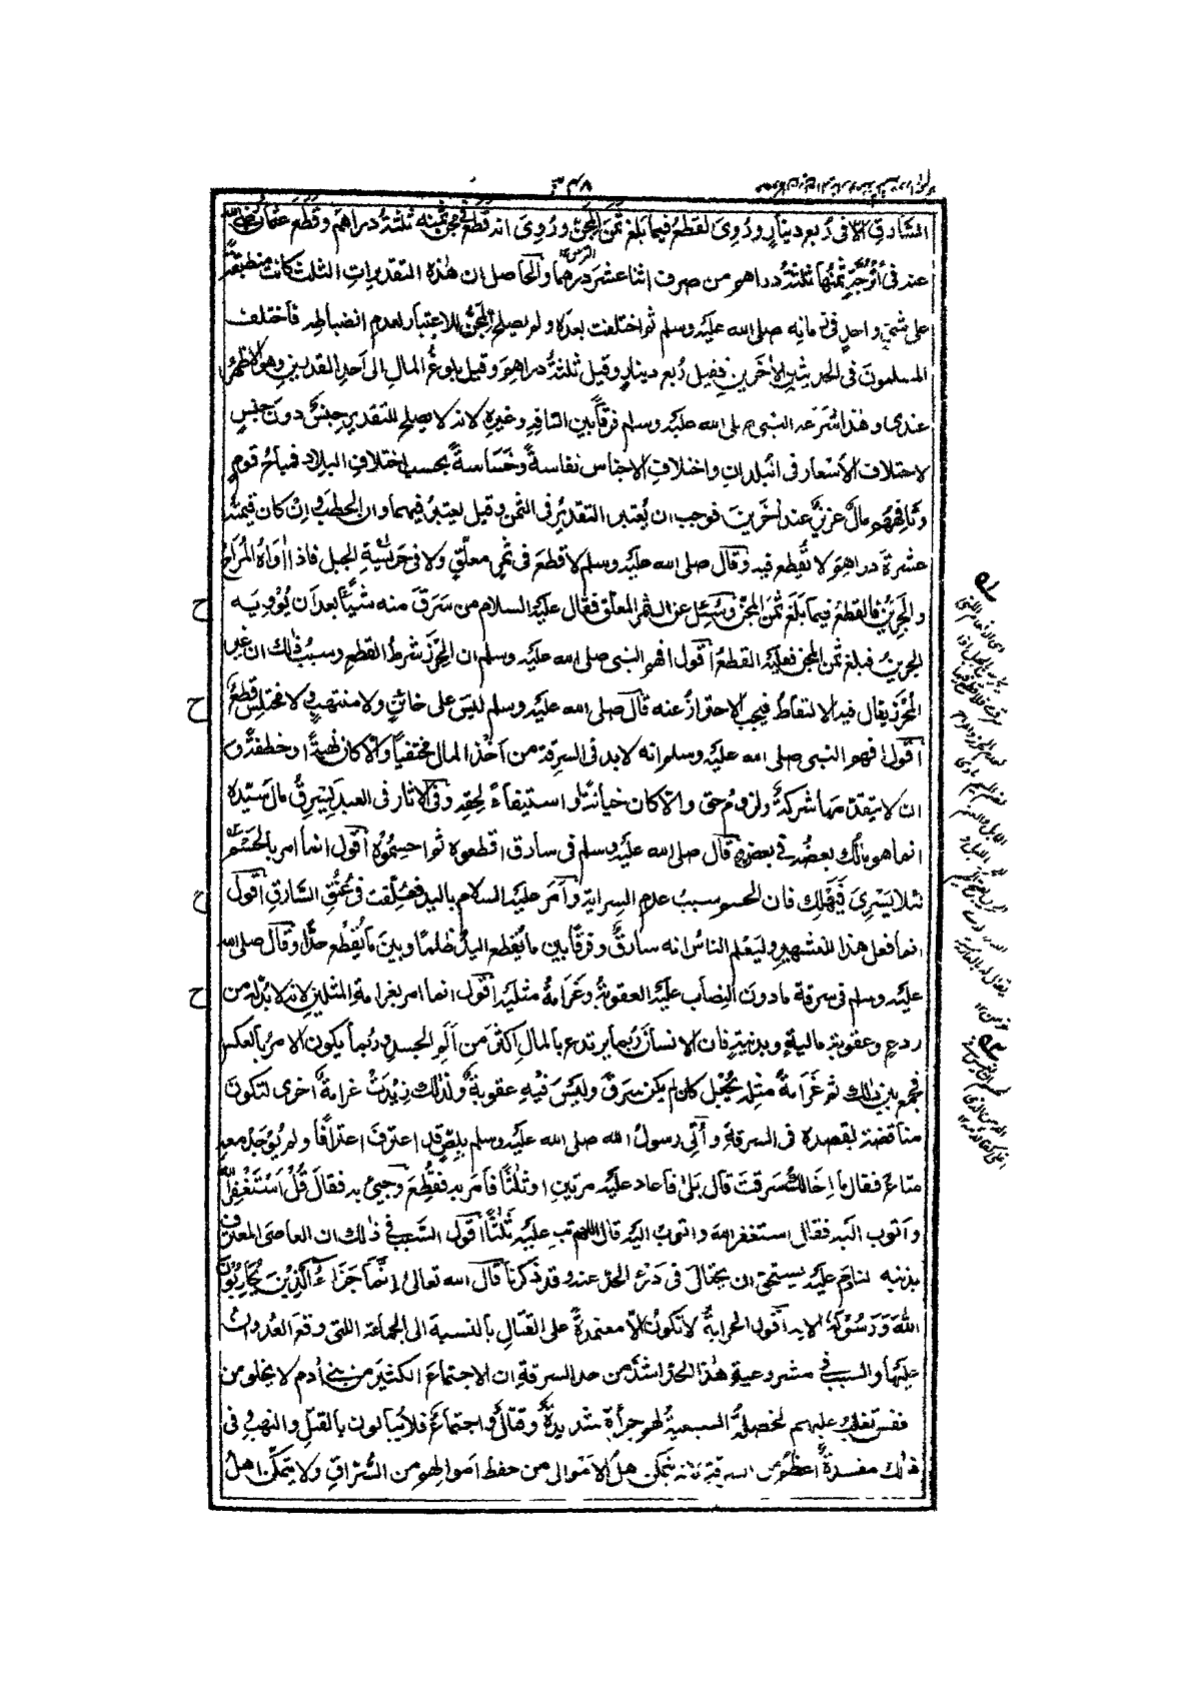 السارق الا فی رُبع دینارٍ ورُوِیَ لقطعُ فیما بلغ ثَمَنَ المِجَنّ ورُوِیَ انه قَطَعَ فی مجنٍّ ثمنه ثلثةُ دراهم وقَطَعَ عثمانُ رضی الله
عنه فی اُتْرُجَّةٍ ثمنُها ثلثةُ دراهم من صرف اثنا عشر درهما والحاصل ان هٰذه التقدیراتِ الثلث کانت منطبقةً
علی شیءٍ واحدٍ فی زمانه صلی الله علیه وسلم ثم اختلفت بعدَه ولم یصلح المجنُّ للاعتبار لعدم انضباطه فاختلف
المسلمون فی الحدیثین الاٰخَرین فقیل رُبع دینارٍ وقیل ثلثةُ دراهم وقیل بلوغُ المال الی اَحدِ القدرین وهو الاظهرُ
عندی وهٰذا شَرَعه النبی صلی الله علیه وسلم فرقاً بین التافِهِ وغیرِهِ لانه لا یصلح للتقدیر جنسٌ دون جنسٍ
لاختلاف الاَسعار فی البلدان واختلافِ الاجناس نفاسةً وخَسَاسةً بحسب اختلافِ البلاد فمباحُ قومٍ
وتافهُهم مالٌ عزیزٌ عند اٰخَرینَ فوجب ان یُعتبر التقدیرُ فی الثمن وقیل یعتبرُ فیهما وان الحطب وان کان قیمتُه
عشرةَ دراهم لا تُقطع فیه وقال صلی الله علیه وسلم لا قطعَ فی ثمرٍ معلَّقٍ ولا فی حَریسةِ الجبل فاذا اٰواهُ المُرَاحُ
والجَرِینُ فالقطعُ فیما بَلَغَ ثمنَ المِجَنّ وسُئِلَ عن الثمر المعلَّق فقال علیه السلام من سَرَقَ منه شیئًا بعد اَن یُؤویَه
الجرینُ فبلغ ثمنَ المجن فعلیه القطعُ اقول افهم النبی صلی الله علیه وسلم ان الحِرْزَ شرطُ القطع وسببُ ذٰلك ان غیر
المُحْرَز یقال فیه الالتقاط فیجب الاحترازُ عنه قال صلی الله علیه وسلم لیس علی خائنٍ ولا منتهبٍ ولا مختلِسٍ قطعٌ
اقول افهم النبی صلی الله علیه وسلم انه لابد فی السرقة من اَخْذ المال مختفیاً والا کان نُهبةً او خطفةً و
ان لا یتقدمَها شرکةٌ ولزومُ حق والا کان خیانةً او استیفاءً لحقه وفی الاٰثار فی العبد یَسرِقُ مال سیّدِه
انما هو مالُك بعضُه فی بعضٍ قال صلی الله علیه وسلم فی سارق اقطعوه ثم احسِمُوْهُ اقول انما امر بالحَسْم
لئلا یَسْرِیَ فَیَهْلِك فان الحسم سببُ عدمِ السرایةِ وامَر علیه السلام بالید فعُلِّقت فی عُنُقِ السارق اقول
انما فعل هذا للتشهیرِ ولیَعْلم الناسُ انه سارقٌ وفرقاً بین ما یُقطع الیدُ ظلمًا وبینَ ما یُقْطع حدًّا وقال صلی الله
علیه وسلم فی سرقة ما دون النِصاب علیه العقوبةُ وغَرَامةُ مثلَیه اقول انما امر بغرامةِ المثلین لانه لابدَّ له من
ردعٍ وعقوبةٍ مالیةٍ وبدنیةٍ فان الانسان رُبما یرتدع بالمالِ اکثرَ من اَلَمِ الجسدِ وربما یکون الامرُ بالعکس
فجمع بین ذٰلك ثم غَرَامةُ مثلِه یُجعل کان لم یکن سَرَقَ ولیس فیه عقوبةٌ ولذٰلك زیدَتْ غرامةٌ اُخری لتکون
مناقضةً لقصدِه فی السرقةِ واُتِی رسولُ الله صلی الله علیه وسلم بلِصٍّ قد اعترف اعترافًا ولم یُوجَدْ معه
متاعٌ فقال ما اِخَالُكَ سَرَقتَ قال بلیٰ فاَعاد علیه مرتین او ثلثًا فاَمَر به فقُطِعَ وجیءَ به فقال قُل اَسْتَغْفِرُ اللهَ
واَتوب الیه فقال استغفر الله واتوب الیه قال اللهم تُبْ علیه ثلٰثًا اقول السّبب فی ذٰلك ان العاصی المعترِف
بذنبه النادم علیه یستحقُ ان یحتال فی دَرْءِ الحدِ عنه وقد ذکرنا قال الله تعالی اِنَّمَا جَزَاءُ الَّذِیْنَ یُحَارِبُوْنَ
اللهَ وَرَسُوْلَهٗ الاٰیة اقول الحرابةُ لا تکونُ الا معتمدةً علی القتالِ بالنسبة الی الجماعة التی وقع العُدوان
علیها والسبب فی مشروعیةِ هٰذا الحدِ اشدَّ من حد السرقةِ ان الاجتماعَ الکثیرَ من بنی اٰدم لا یخلو من
انفسٍ تغلب علیهم الخصلةُ السبعیةُ لهم جرأةٌ شدیدةٌ وقتالٌ واجتماعٌ فلا یُبالون بالقتلِ والنهب وفی
ذٰلك مفسدةٌ اعظمُ من السرقة لانه یتمکن اهلُ الاموال من حفظ اموالهم من السُّرّاقِ ولا یتمکّن اهلُ